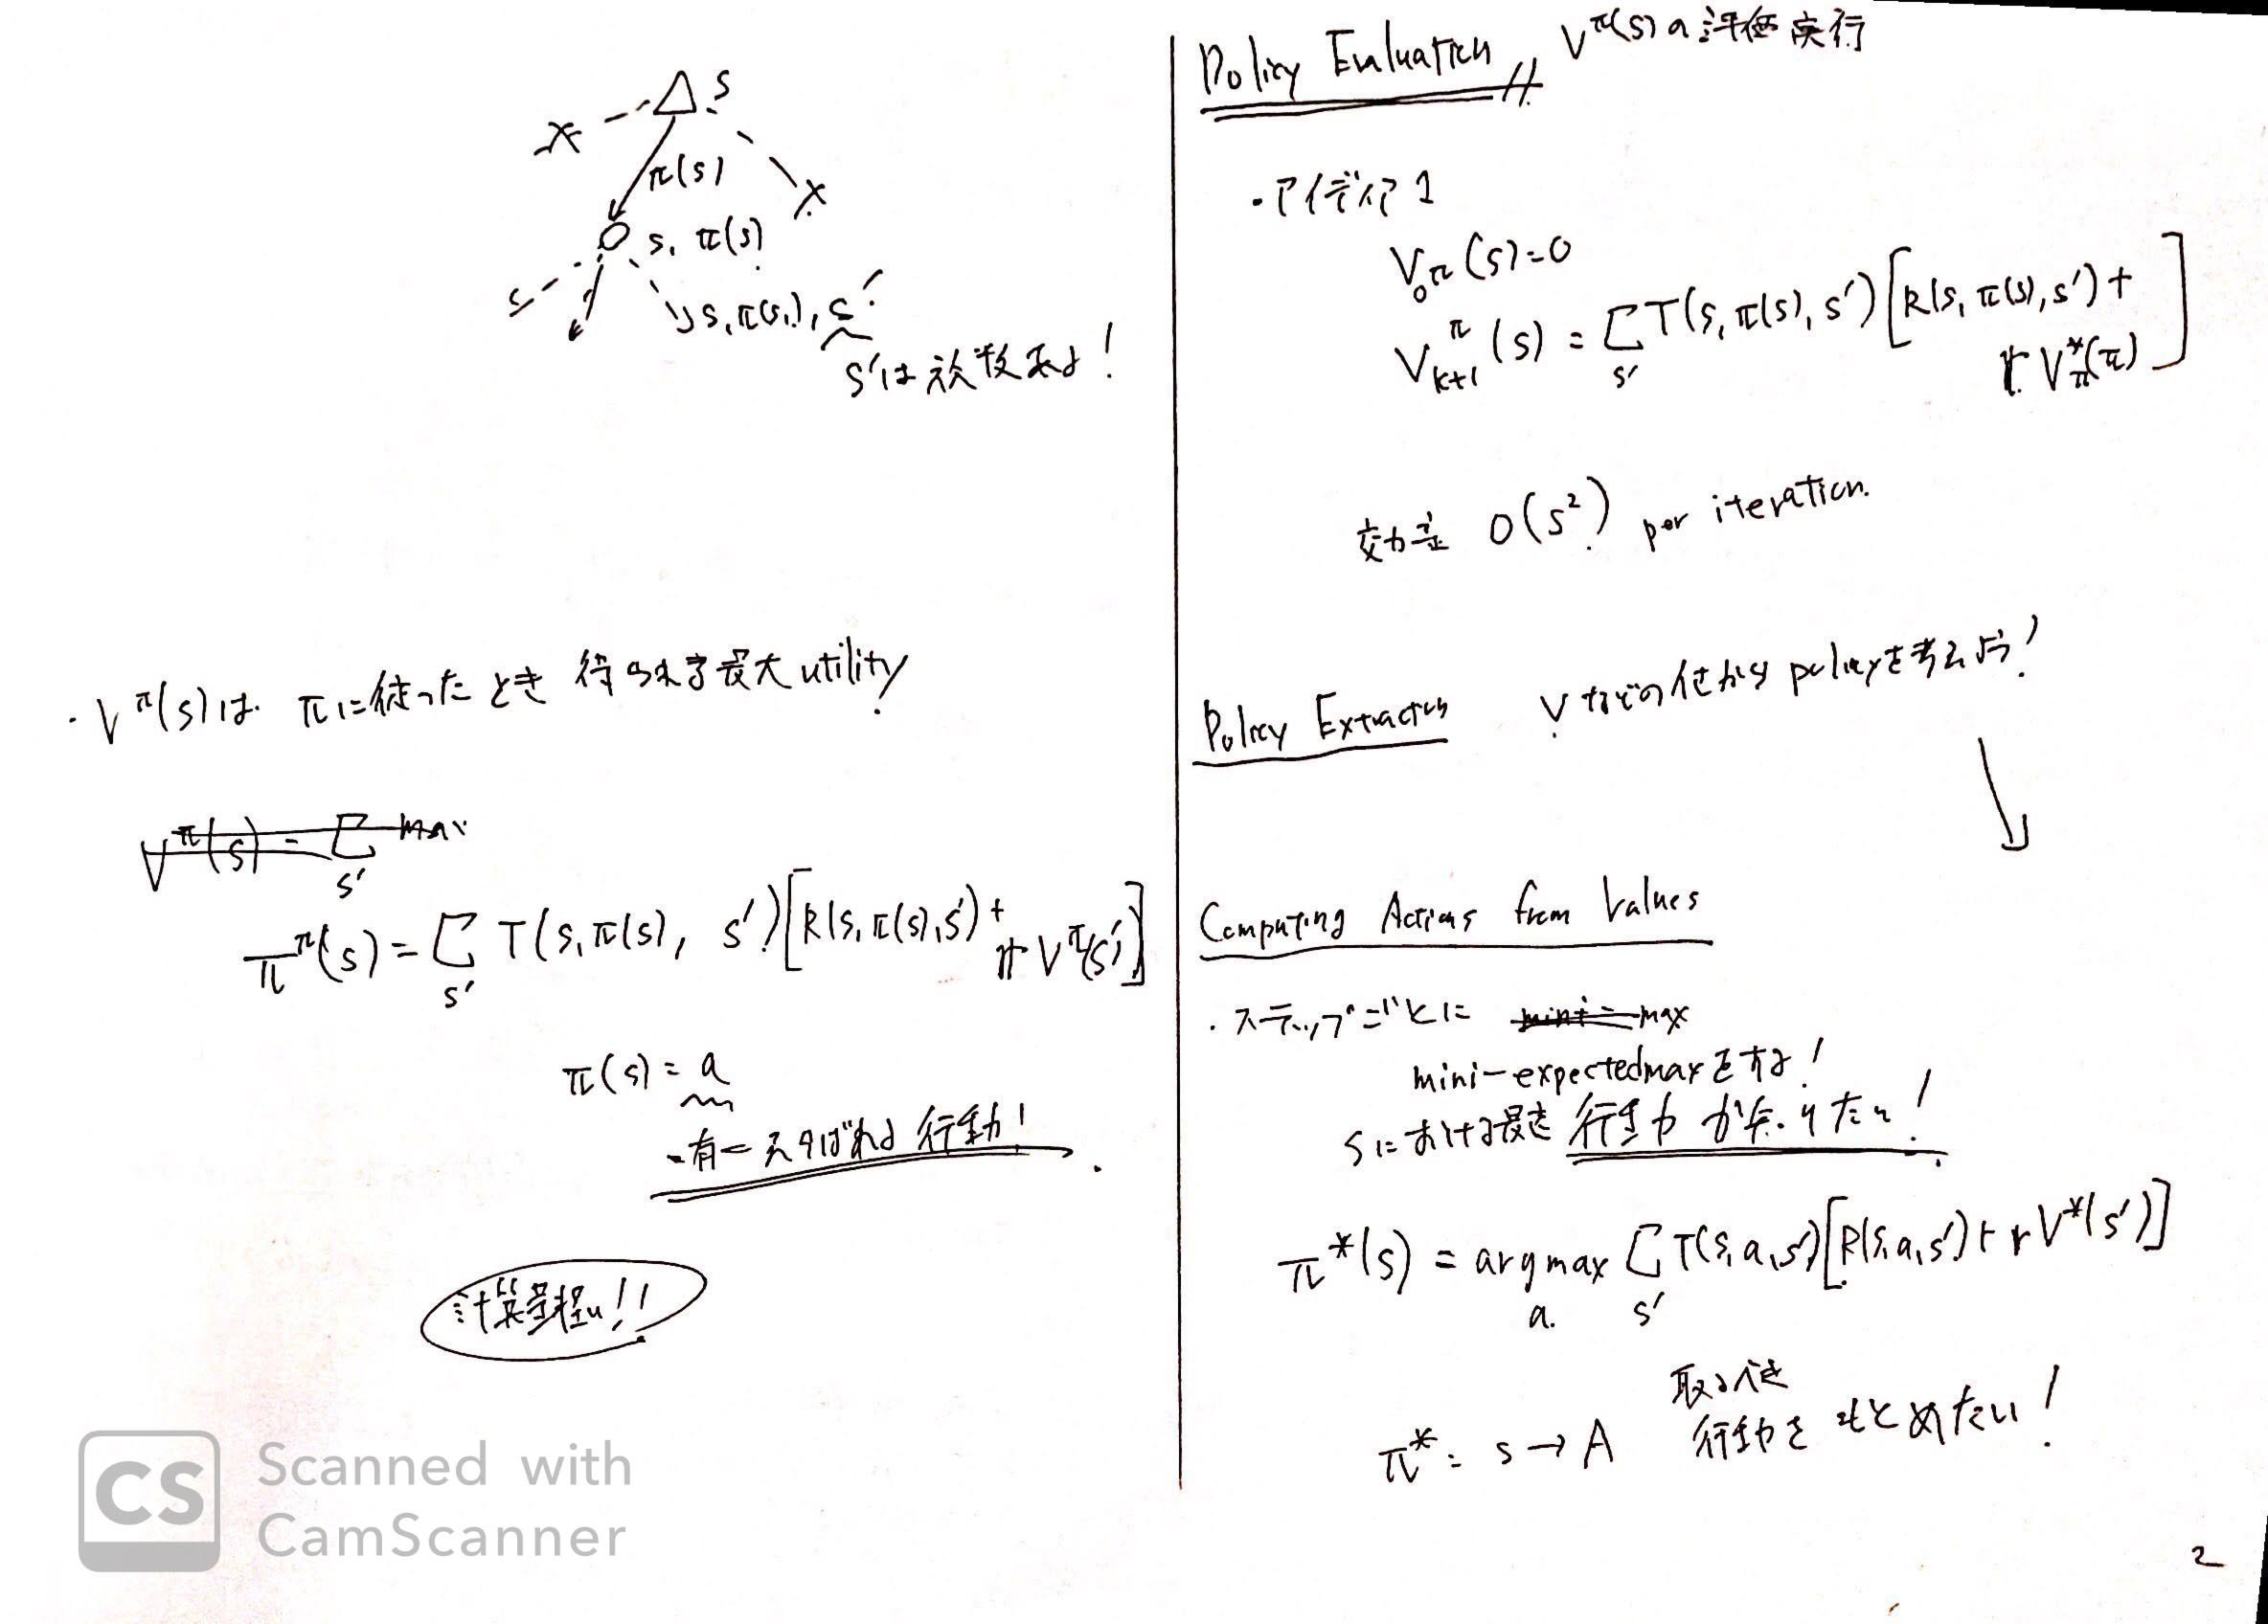 S
π(s)
x
x
s, π(s)
s, π(s), s'
s'は複数あよ!
・V^π(s)は πに従ったとき 得られる最大utility
V^π(s) = Σ max
s'
π^π(s) = Σ T(s, π(s), s') [R(s, π(s), s') +
s' γ V^π(s')]
π(s) = a
行動!
計算量軽い!!
Policy Evaluation V^π(s)の評価実行
・アイディア1
V_0^π(s)=0
V_{k+1}^π(s) = Σ T(s, π(s), s') [R(s, π(s), s') +
s' γ V_π^*(π)]
効力率 O(s²) per iteration.
Policy Extraction Vなどの値からpolicyを考えよう!
Computing Actions from Values
・ステップごとに mini-max
mini-expectedmaxをする!
sにおける最適行動が知りたい!
π*(s) = argmax Σ T(s, a, s') [R(s, a, s') + γ V*(s')]
a. s'
取るべき
π* : s → A 行動をもとめたい!
2
CS Scanned with
CamScanner